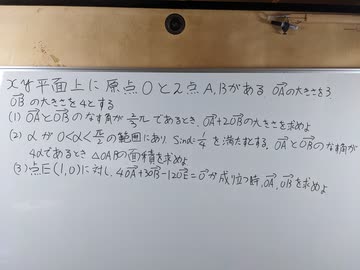 xy平面上に原点Oと2点A,Bがある OA→の大きさを3,
OB→の大きさを4とする
(1) OA→とOB→のなす角が 2/3π であるとき、OA→+2OB→の大きさを求めよ
(2) αが 0<α<π/2 の範囲にあり Sinα=1/4 を満たすとする。OA→とOB→のなす角が
4αであるとき △OABの面積を求めよ
(3) 点E(1,0)に対し、4OA→+3OB→-12OE→=0→が成り立つ時、OA→、OB→を求めよ